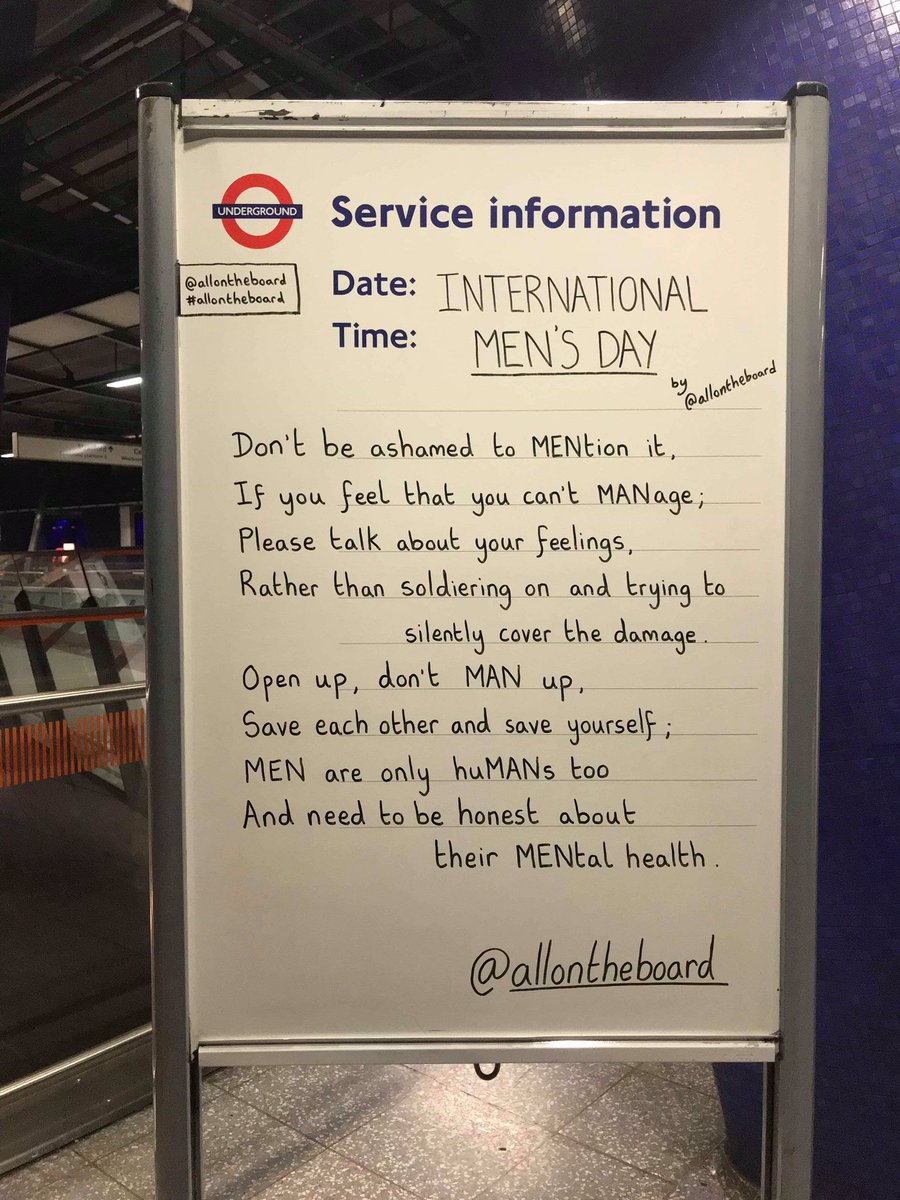 UNDERGROUND
Service information
@allontheboard
#allontheboard
Date: INTERNATIONAL
Time: MEN'S DAY
by
@allontheboard
Don't be ashamed to MENtion it,
If you feel that you can't MANage;
Please talk about your feelings,
Rather than soldiering on and trying to
silently cover the damage.
Open up, don't MAN up,
Save each other and save yourself;
MEN are only huMANs too
And need to be honest about
their MENtal health.
@allontheboard